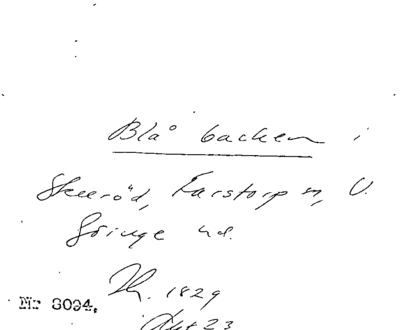 Blå backen i
Skeeröd, Farstorp sn, V.
Göinge hd.
Th. 1829
Okt 23
Nr 8094.